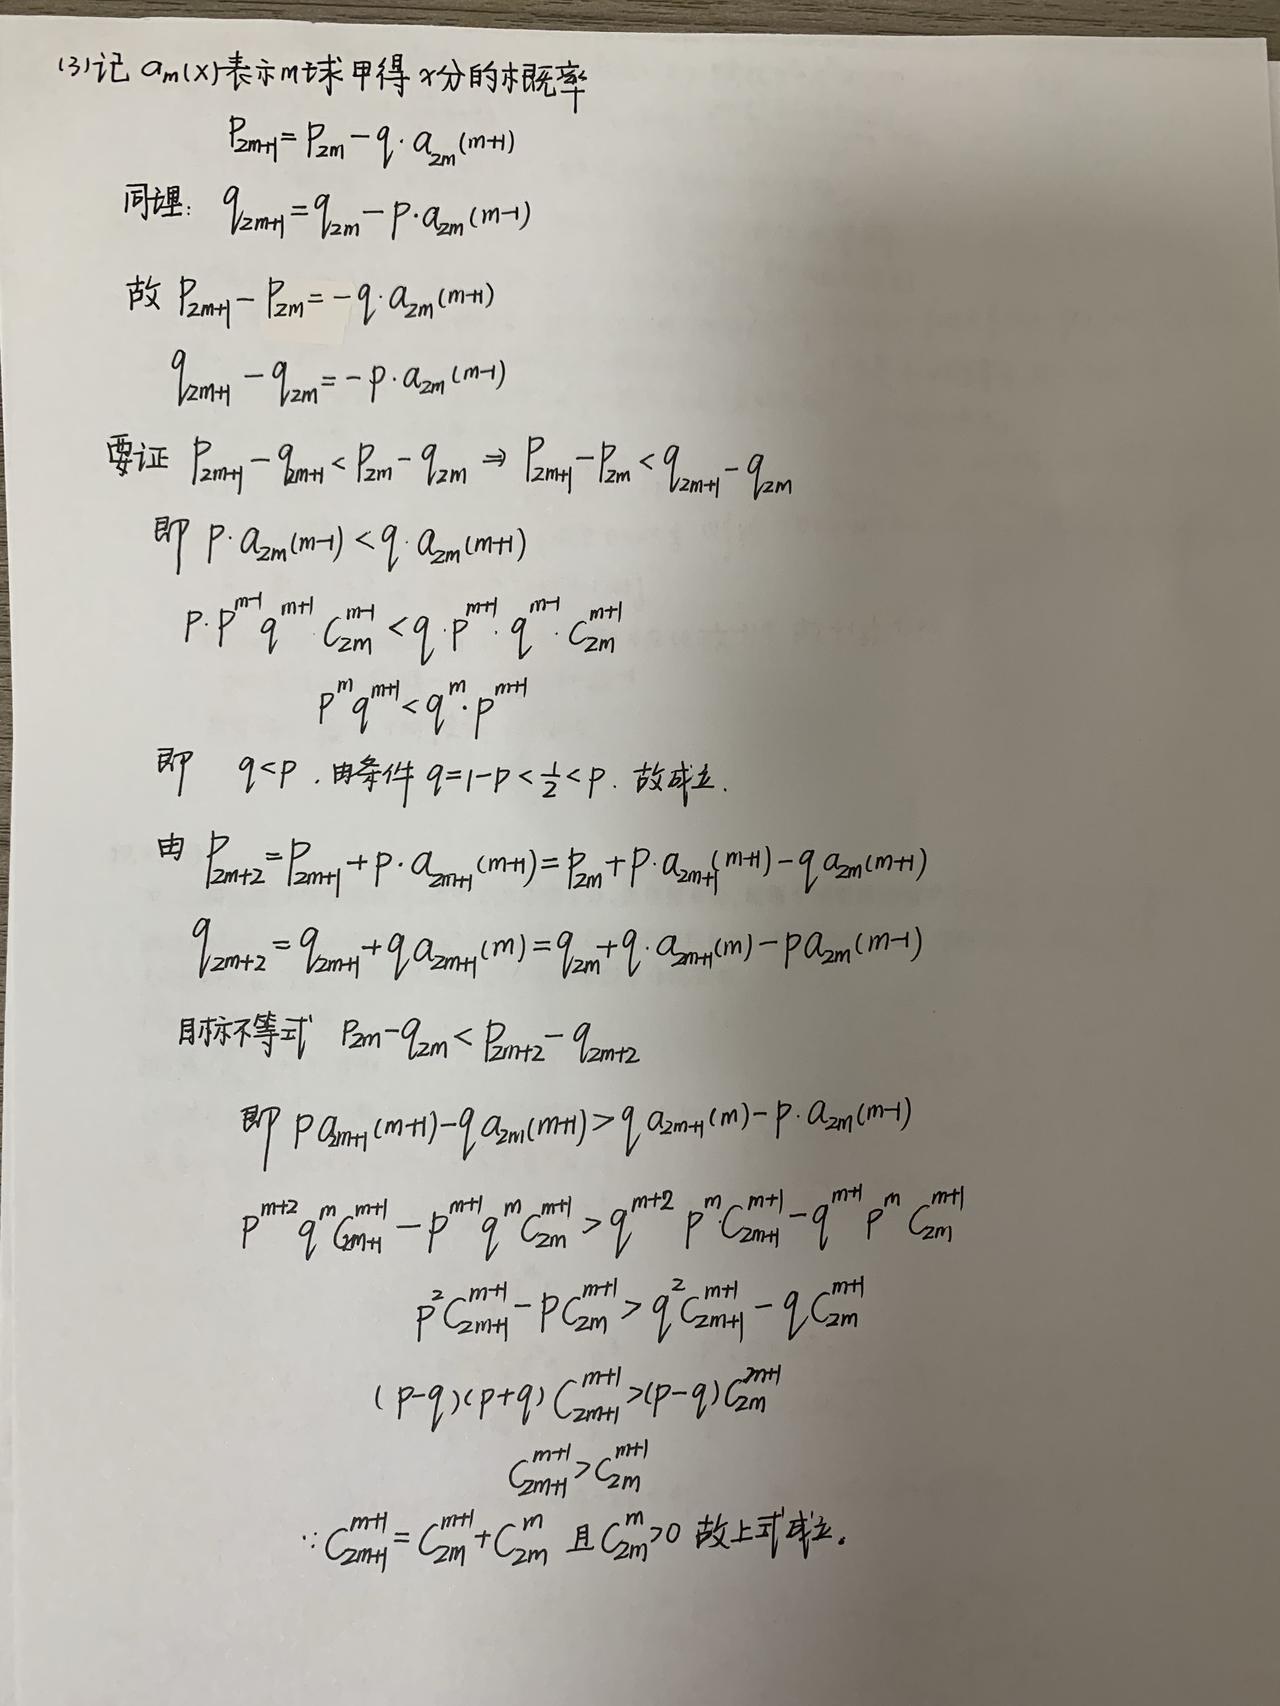 (3)记 aₘ(x)表示m球甲得x分的概率
P₂ₘ₊₁=P₂ₘ-q·a₂ₘ(m+1)
同理: q₂ₘ₊₁=q₂ₘ-p·a₂ₘ(m-1)
故 P₂ₘ₊₁-P₂ₘ=-q·a₂ₘ(m+1)
q₂ₘ₊₁-q₂ₘ=-p·a₂ₘ(m-1)
要证 P₂ₘ₊₁-q₂ₘ₊₁<P₂ₘ-q₂ₘ ⇒ P₂ₘ₊₁-P₂ₘ<q₂ₘ₊₁-q₂ₘ
即 p·a₂ₘ(m-1)<q·a₂ₘ(m+1)
p·p^{m-1}q^{m+1}·C_{2m}^{m-1}<q·p^{m+1}·q^{m-1}·C_{2m}^{m+1}
p^{m}q^{m+1}<q^{m}·p^{m+1}
即 q<p.由条件 q=1-p<1/2<p. 故成立.
由 P₂ₘ₊₂=P₂ₘ₊₁+p·a₂ₘ₊₁(m+1)=P₂ₘ+p·a₂ₘ₊₁(m+1)-q a₂ₘ(m+1)
q₂ₘ₊₂=q₂ₘ₊₁+q a₂ₘ₊₁(m)=q₂ₘ+q·a₂ₘ₊₁(m)-p a₂ₘ(m-1)
目标不等式 P₂ₘ-q₂ₘ<P₂ₘ₊₂-q₂ₘ₊₂
即 p a₂ₘ₊₁(m+1)-q a₂ₘ(m+1)>q a₂ₘ₊₁(m)-p·a₂ₘ(m-1)
p^{m+2}q^{m}C_{2m+1}^{m+1}-p^{m+1}q^{m}C_{2m}^{m+1}>q^{m+2}p^{m}·C_{2m+1}^{m+1}-q^{m+1}p^{m}C_{2m}^{m+1}
p²C_{2m+1}^{m+1}-pC_{2m}^{m+1}>q²C_{2m+1}^{m+1}-qC_{2m}^{m+1}
(p-q)(p+q)C_{2m+1}^{m+1}>(p-q)C_{2m}^{m+1}
C_{2m+1}^{m+1}>C_{2m}^{m+1}
∵C_{2m+1}^{m+1}=C_{2m}^{m+1}+C_{2m}^{m} 且C_{2m}^{m}>0 故上式成立.